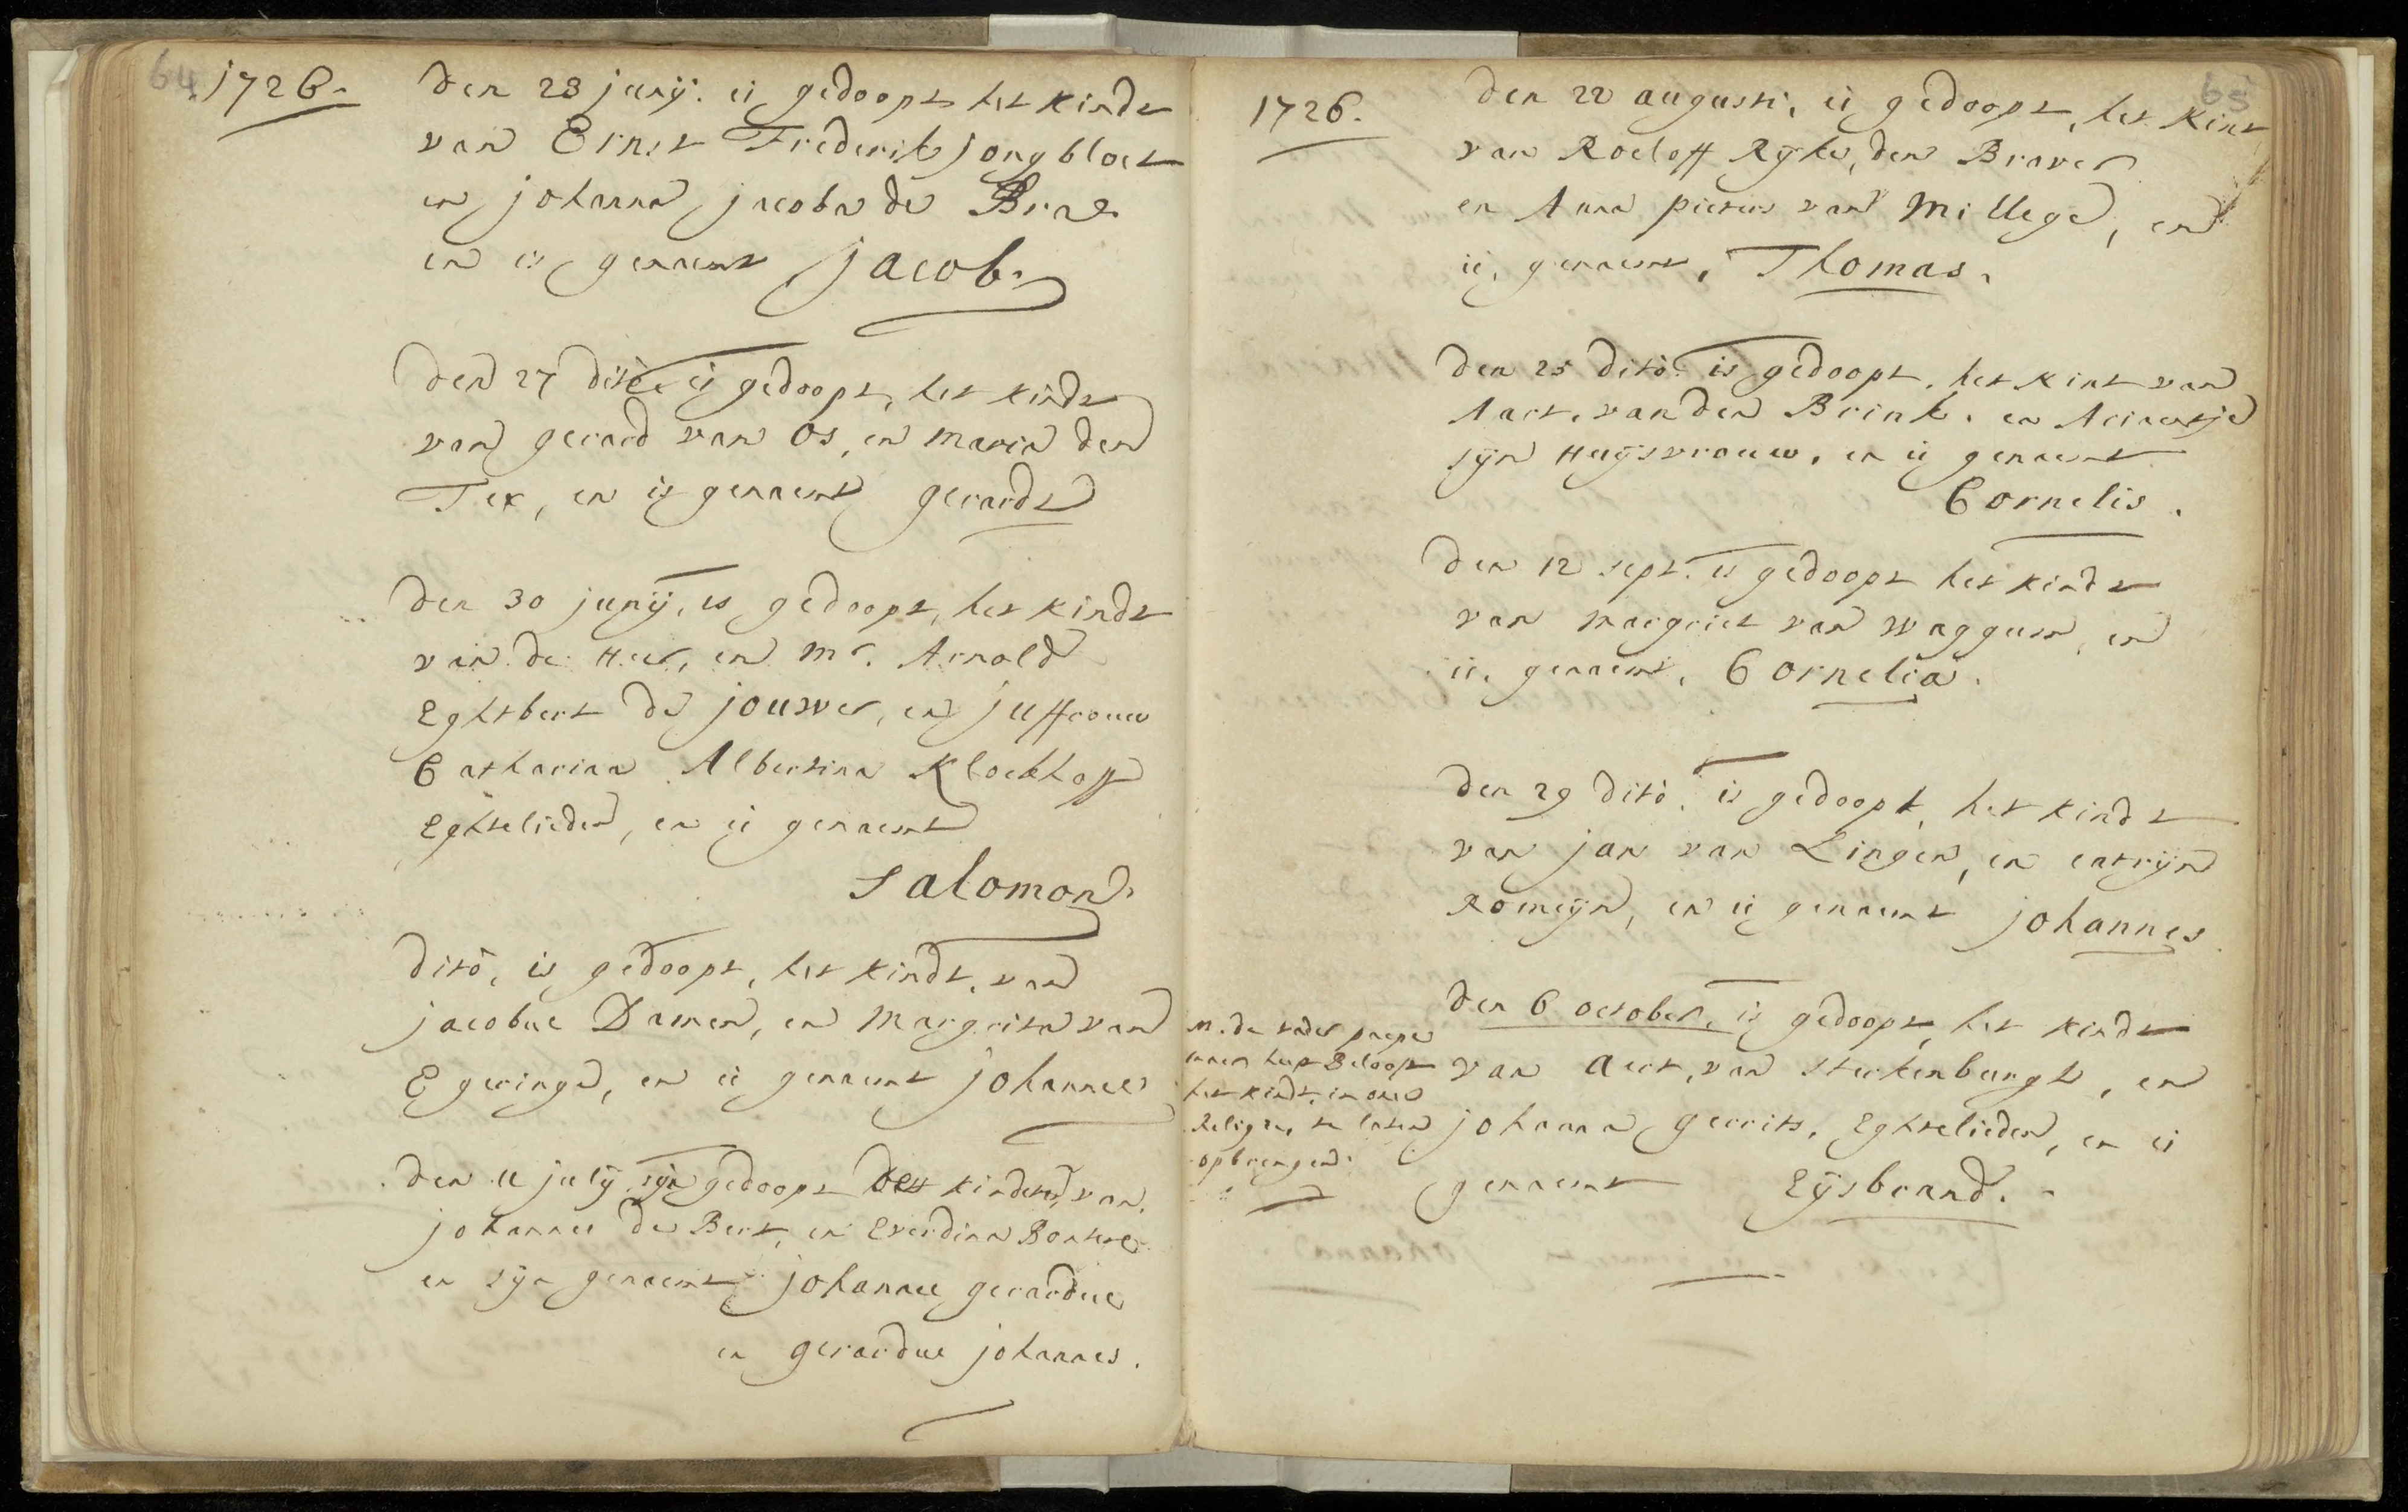 64
1726.
den 23 junij. is gedoopt het kindt
van Ernst Frederik jongbloet
en johanna jacoba de Bra
en is genaemt jacob.
den 27 dito is gedoopt, het kindt
van gerard van Os, en maria den
Tex, en is genaemt gerardt
den 30 junij, is gedoopt, het kindt
van de Heer, en Mr. Arnold
Eghtbert de jouwer, en juffrouw
Catharina Albertina Kloekhoff
Eghtelieden, en is genaemt
Salomon.
dito, is gedoopt, het kindt, van
jacobus Damen, en Margrita van
Egeringe, en is genaemt johannes
den 11 julij sijn gedoopt kinderen van
johannes de Bert, en Everdina Bontre
en sijn genaemt johannes gerardus
en gerardus johannes.
65
1726.
den 22 augusti, is gedoopt, het Kint
van Roeloff Rijke, den Braver
en Anna pieters van Millege, en
is, genaemt, Thomas.
den 25 dito is gedoopt, het Kint van
Aart, van den Brink. en Ariaentje
sijn Huijsvrouw, en is genaemt
Cornelis.
den 12 sept. is gedoopt het kindt
van margriet van Waggum, en
is, genaemt, Cornelia.
den 29 dito. is gedoopt, het kindt
van jan van Lingen, en catrijn
Romeijn, en is genaemt johannes
den 6 october, is gedoopt, het kindt
van Aert, van Sterkenburgh, en
johanna gerrits, Eghtelieden, en is
genaemt Eijsbrand.
de vader paeps
heeft Belooft
het kindt, in onse
Religie, te laten
opbrengen.